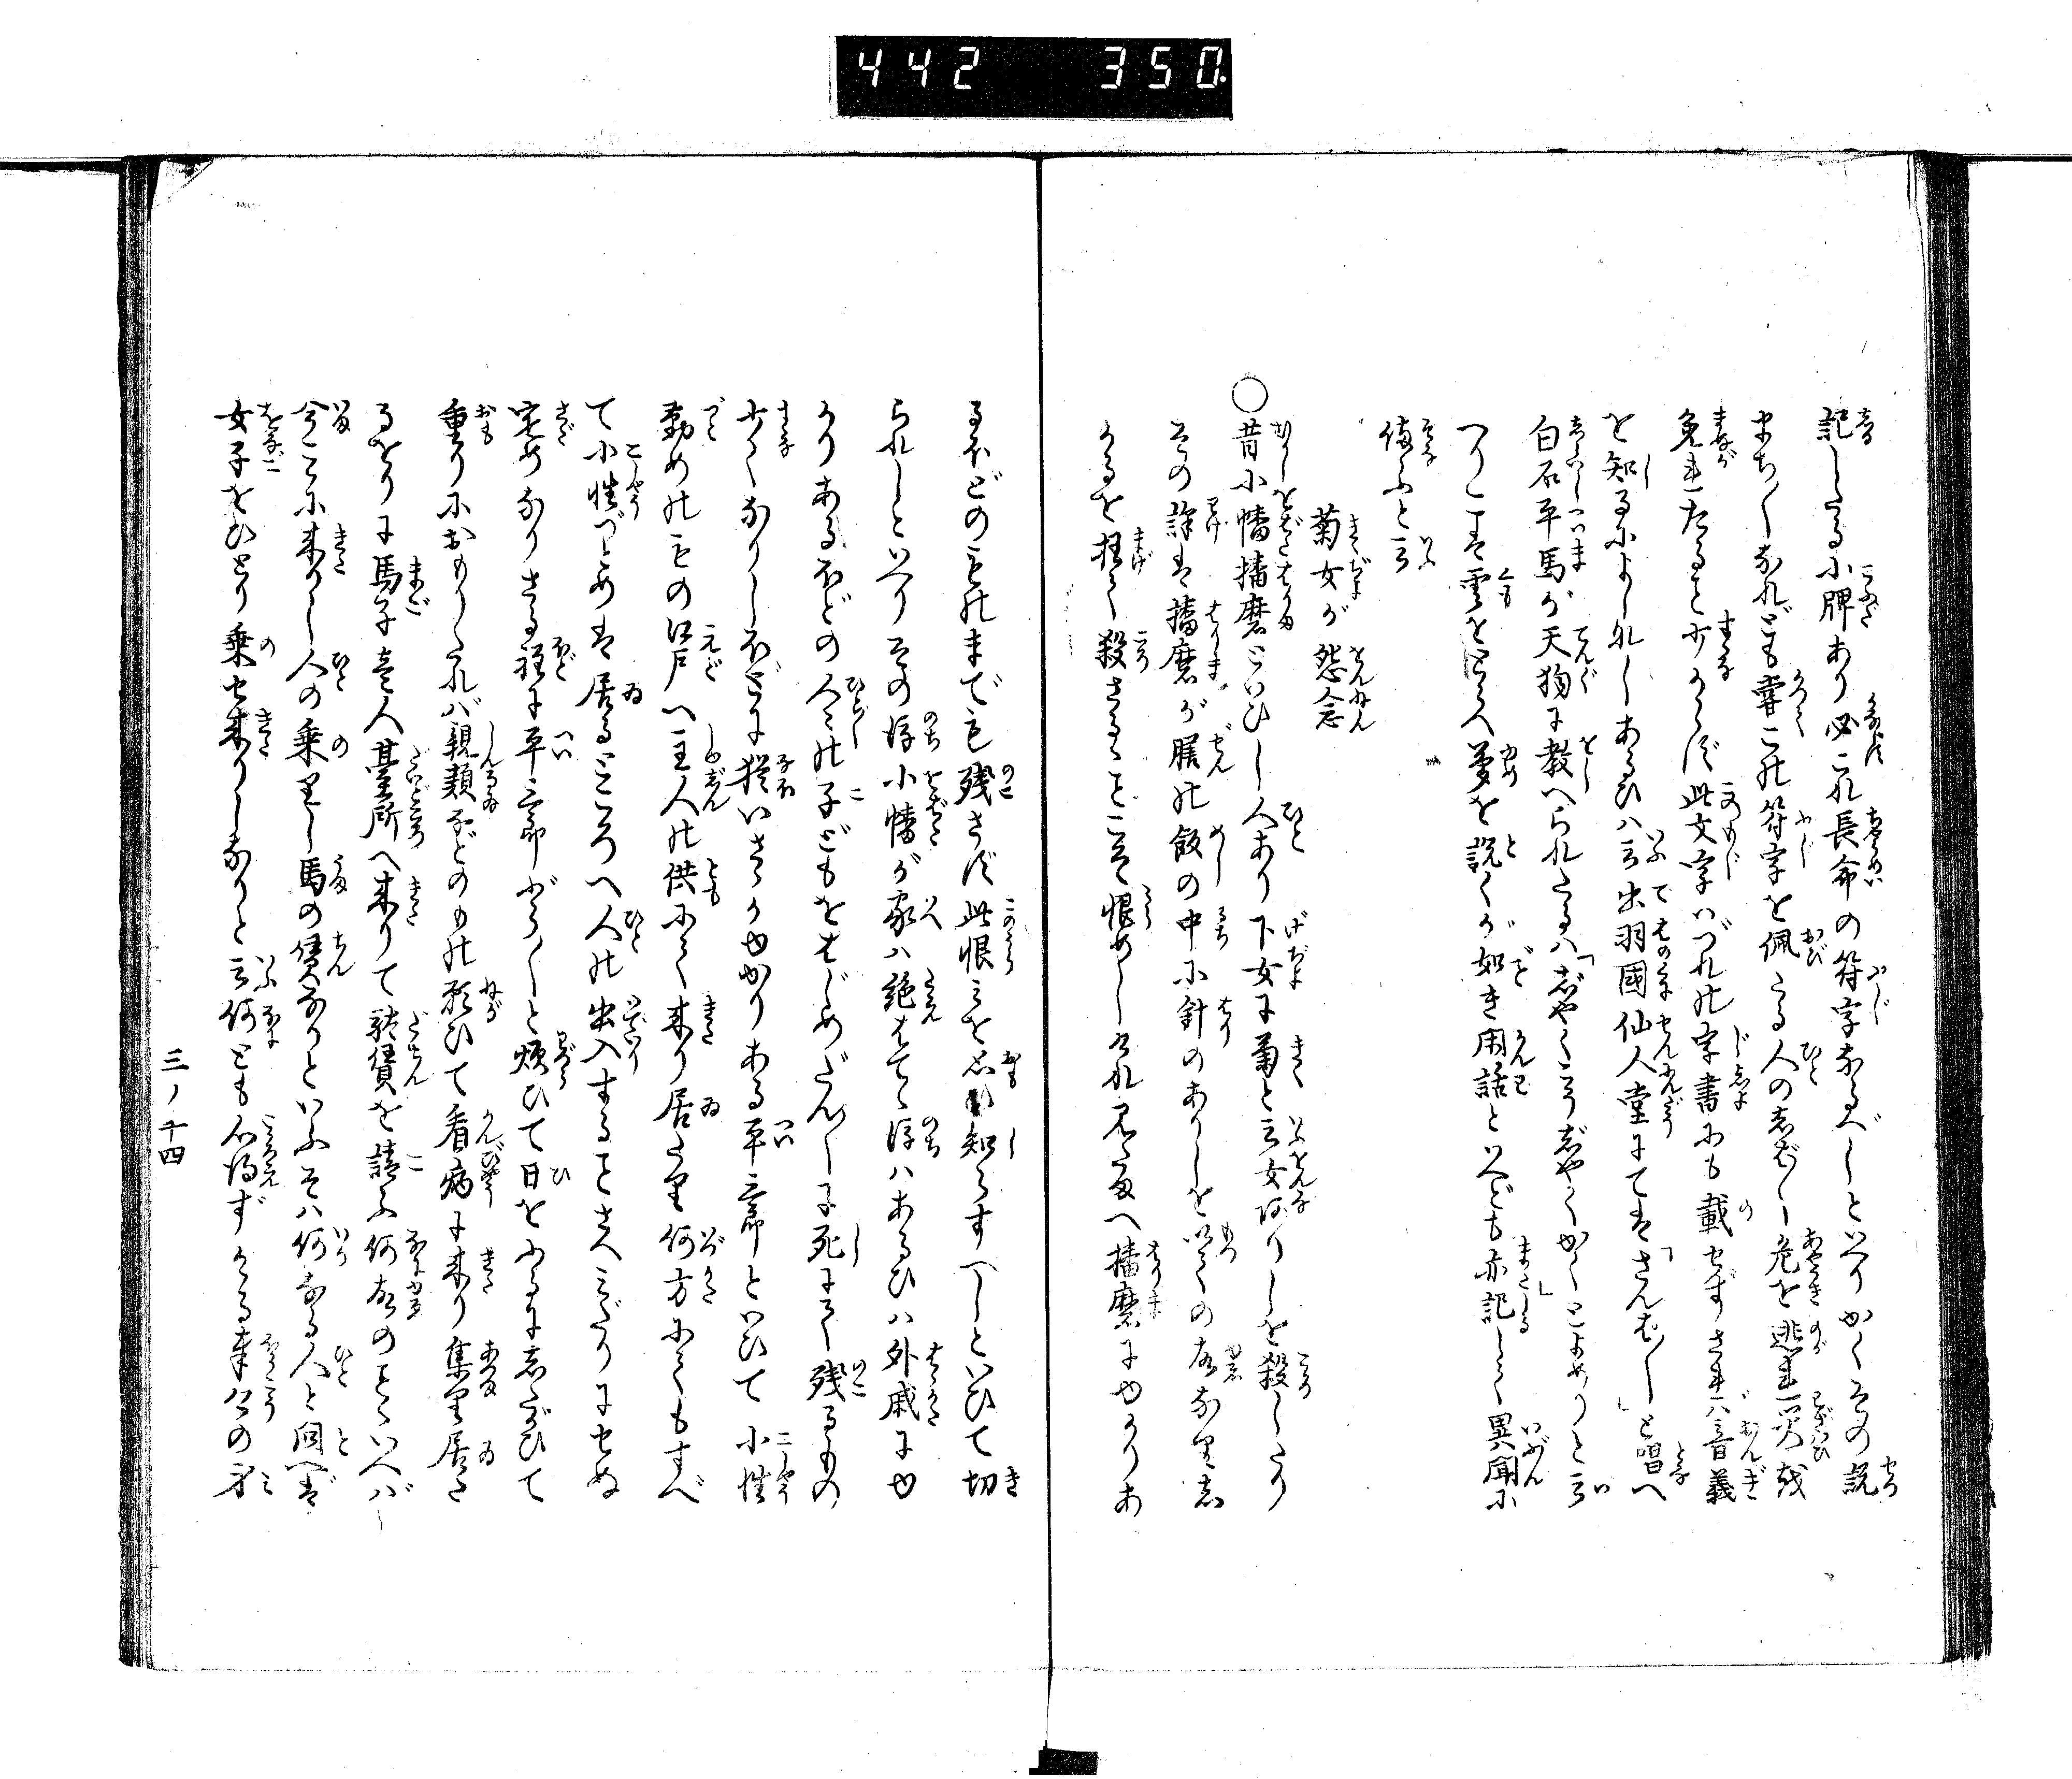 442 350
記したる小牌あり必これ長命の符字なるべしといへりかくその説
まち〱なれども嘗この符字を佩たる人のしば〱危を逃れ災を
免れたること少からず此文字いづれの字書にも載せずされバ音義
を知るによしなしあるひハ云出羽國仙人堂にては「さんば〱」と唱へ
白石平馬が天狗に教へられたるハ「じやくこうじやくかく」とよめりと云
つくこは雲をとらへ夢を説くが如き閑話といへども亦記して異聞に
備ふと云
菊女が怨念
○昔小幡播磨といひし人あり下女に菊と云女ありしを殺したり
その譯は播磨が膳の飯の中に針のありしを以ての故なりし
かるを狂て殺さるゝことこそ恨めしけれ見たまへ播磨にゆかりあ
るほどのものまでも残さず此恨みを思ひ知らすべしといひて切
られしといへりその後小幡が家ハ絶はてゝ後ハあるひハ外戚にゆ
かりあるほどの人々の子どもをはじめだん〱に死にて残るもの
少くなりしほどに猶いさゝかゆかりある平三郎といひて小性
勤めのもの江戸へ主人の供にて来り居たり何方にてもすべ
て小性づとめは居るところへ人の出入することさへみだりにせぬ
定めなりさる程に平三郎ぶら〱と煩ひて日をふるにしたがひて
重りにおもりたれバ親類などのもの願ひて看病に来り集り居た
るをりに馬子壱人臺所へ来りて駄賃を請ふ何故のことゝいへバ
今こゝに来りし人の乗りし馬の賃なりといふそハ何なる人と問へば
女子をひとり乗せ来りしなりと云何とも心得ずかゝる奉公の身
三ノ十四